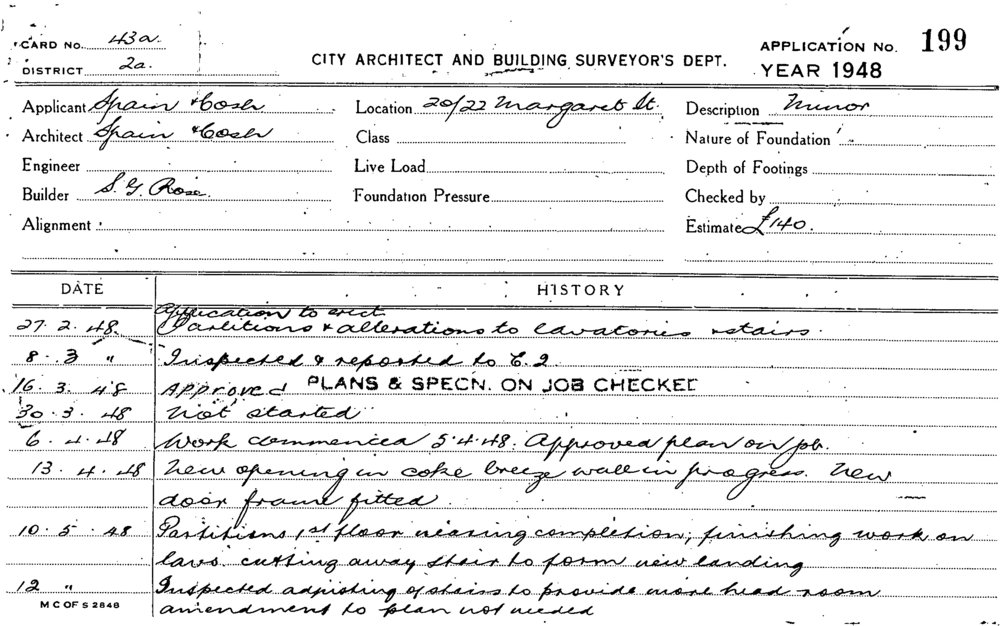 CARD NO. 43a.
DISTRICT 2a.
CITY ARCHITECT AND BUILDING SURVEYOR'S DEPT.
APPLICATION No. 199
YEAR 1948
Applicant Spain & Cosh
Location 20/22 Margaret St.
Description Minor
Architect Spain & Cosh
Class
Nature of Foundation
Engineer
Live Load
Depth of Footings
Builder S. G. Rose.
Foundation Pressure
Checked by
Alignment
Estimate £140.
DATE HISTORY
Application to erect
27. 2. 48. Partitions & alterations to lavatories & stairs.
8. 3 " Inspected & reported to C.I.
16. 3. 48 Approved PLANS & SPECN. ON JOB CHECKED
30. 3. 48 Not started
6. 4. 48 Work commenced 5.4.48. Approved plan on job.
13. 4. 48 New opening in coke breeze wall in progress. New
door frame fitted
10. 5. 48 Partitions 1st floor nearing completion, finishing work on
lavs. cutting away stair to form new landing
12 " Inspected adjusting of stairs to provide more head room
amendment to plan not needed
M C OF S 2848